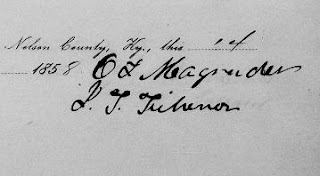 Nelson County, Ky., this 1 of
1858 O L Magruder
J. T. Tichenor